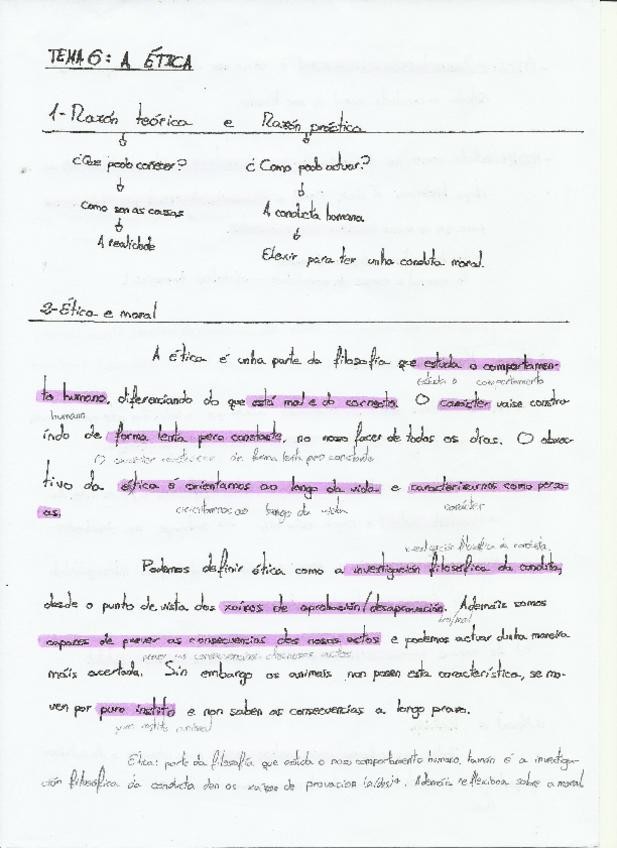 TEMA 6: A ÉTICA
1- Razón teórica e Razón práctica
¿Que podo coñecer? ¿Como podo actuar?
Como son as cousas A conducta humana
A realidade Elexir para ter unha conduta moral.
2- Ética e moral
A ética é unha parte da filosofía que estuda o comportamen-
estuda o comportamento
to humano, diferenciando do que está mal e do correcto. O carácter vaise constru-
humano
índo de forma lenta pero constante, no noso facer de todos os días. O obxec-
O carácter de forma lenta pero constante
tivo da ética é orientarnos ao longo da vida e caracterizarnos como perso-
orientarnos ao longo da vida carácter
as.
investigación filosófica da conducta
Podemos definir ética como a investigación filosófica da conduta,
desde o punto de vista dos xuízos de aprobación/desaprobación. Ademáis somos
capaces de prever as consecuencias dos nosos actos e podemos actuar dunha maneira
prever as consecuencias dos nosos actos
máis acertada. Sin embargo os animais non posen esta característica, se mo-
ven por puro instinto e non saben as consecuencias a longo prazo.
puro instinto animal
Ética: parte da filosofía que estuda o noso comportamento humano, tamén é a investiga-
ción filosófica da conducta den os xuízos de Ademáis reflexiona sobre a moral